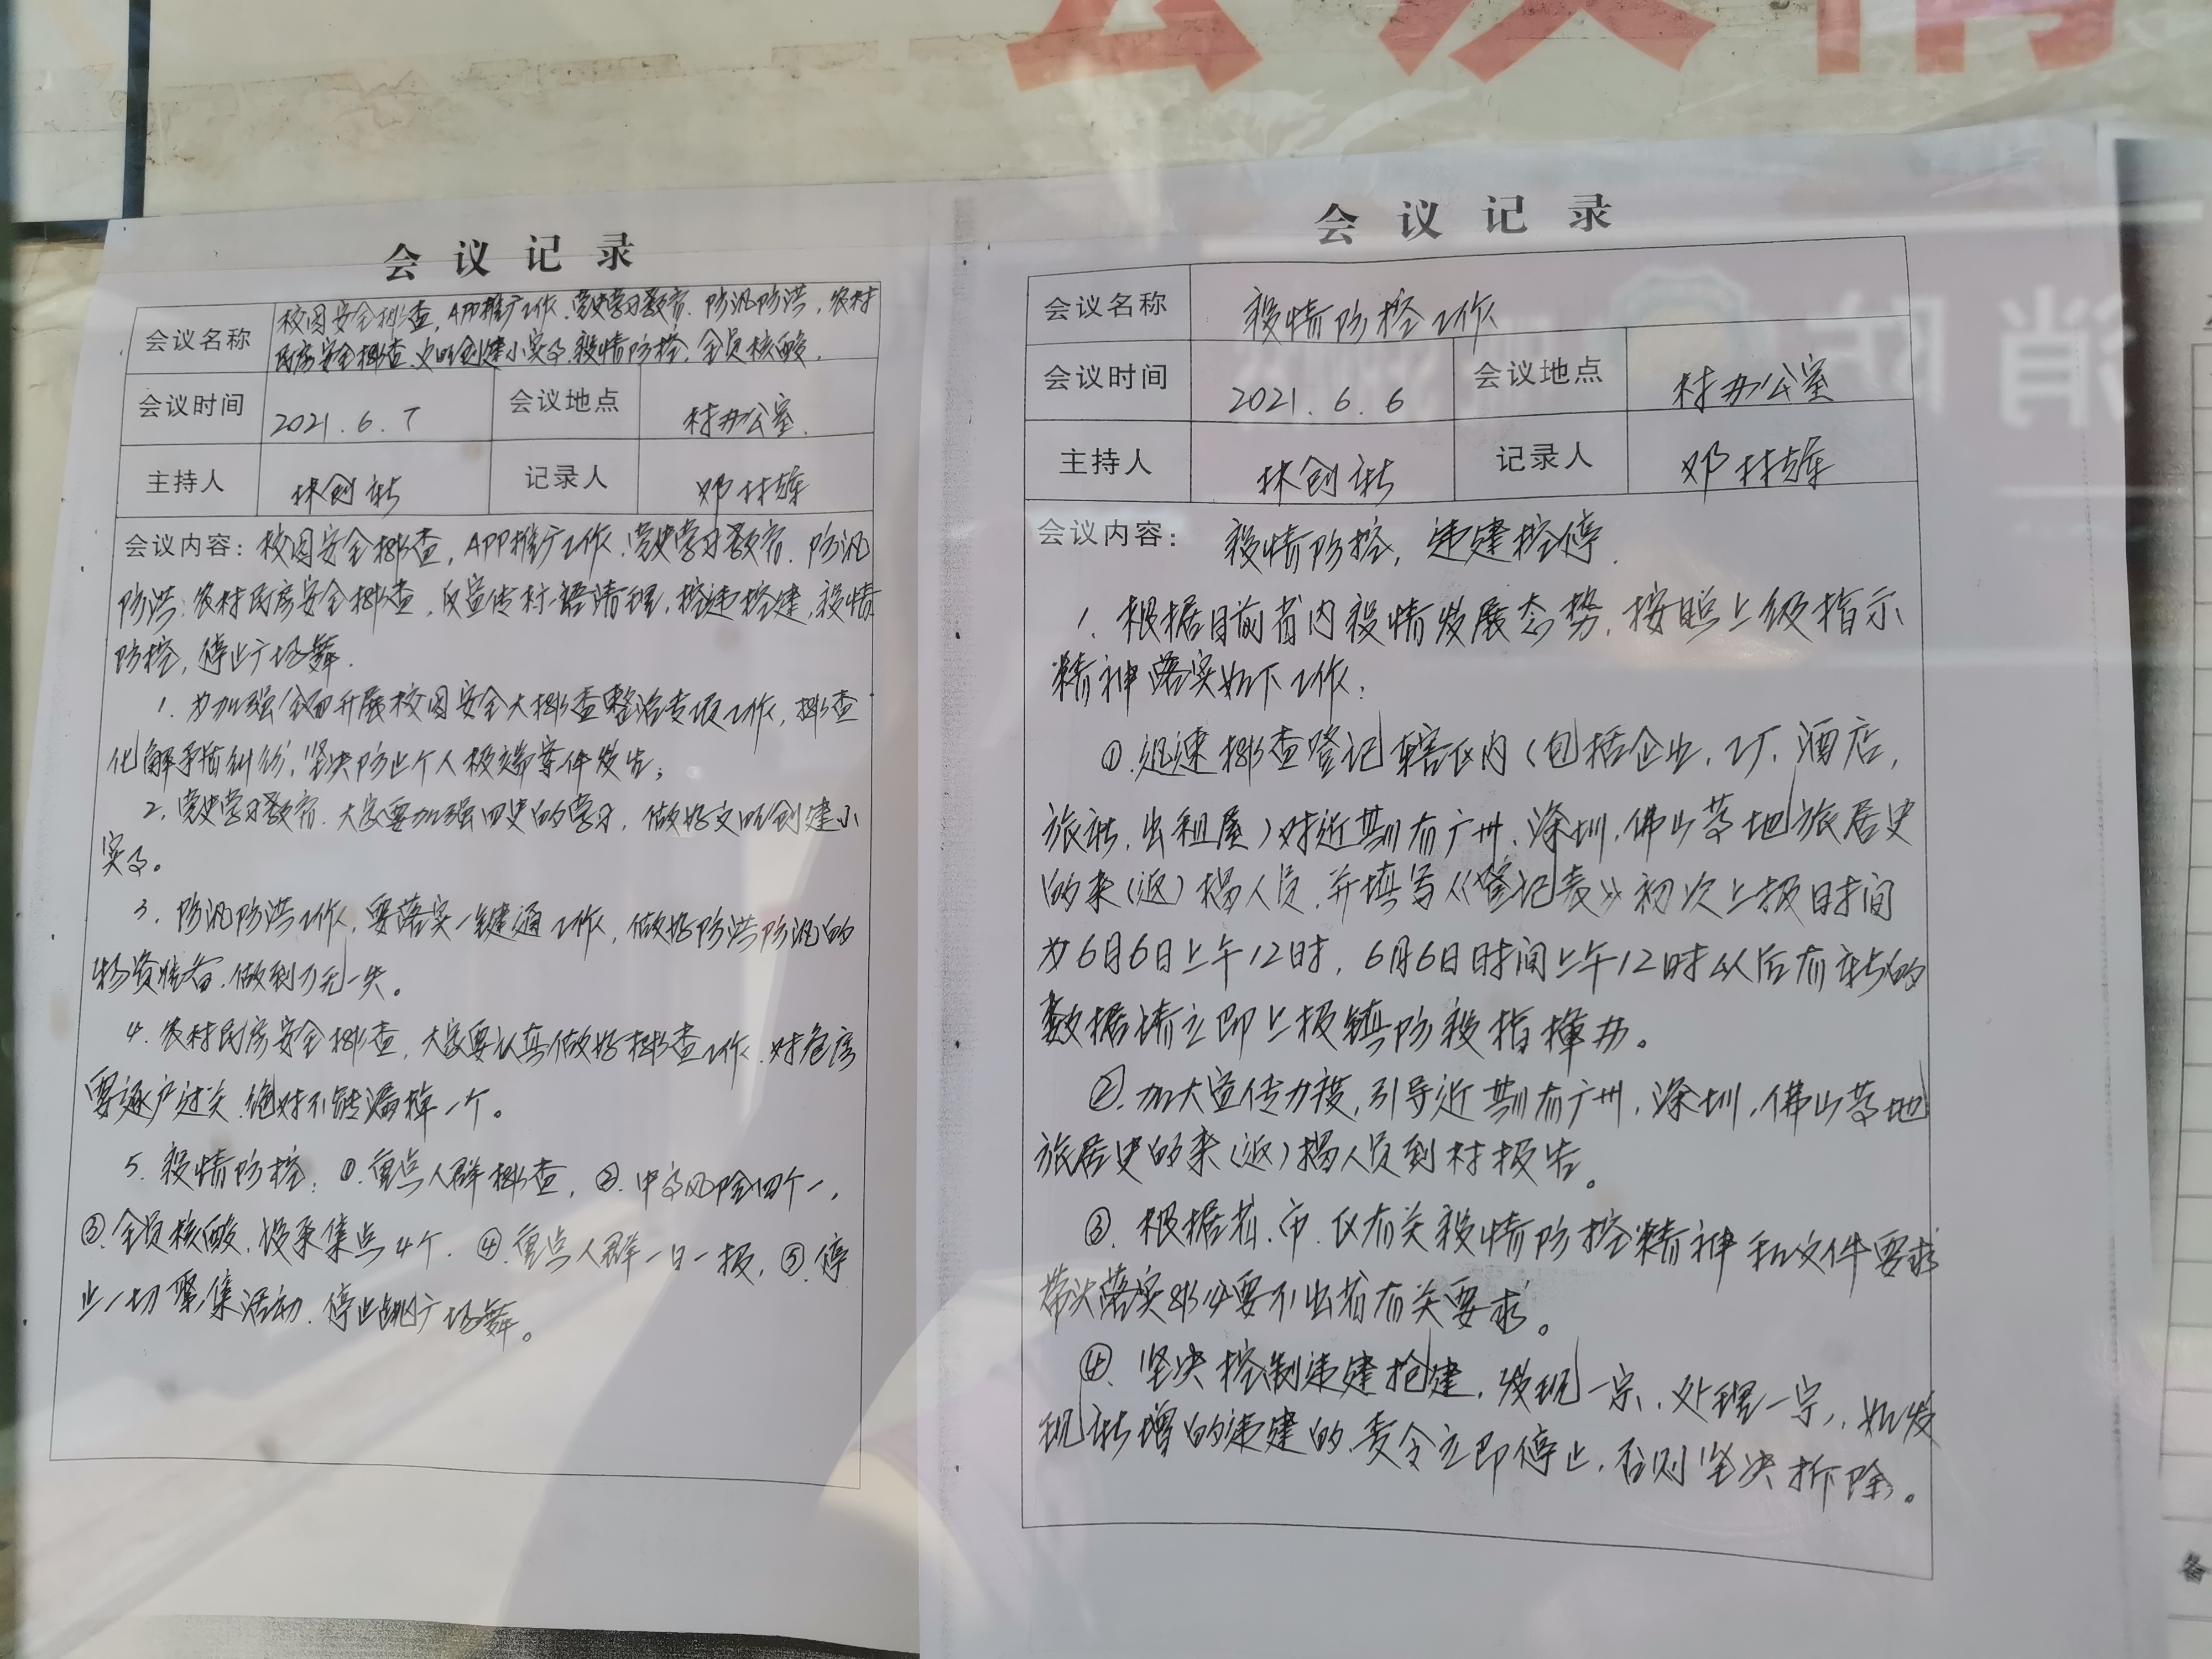 会议记录
会议名称
校园安全排查,APP推广工作.党史学习教育.防汛防洪,农村
民房安全排查.文明创建小实事.疫情防控.全员核酸.
会议时间 2021.6.7 会议地点 村办公室.
主持人 林创新 记录人 邓林雄
会议内容: 校园安全排查,APP推广工作.党史学习教育.防汛
防洪.农村民房安全排查,反宣传标语清理,控违控建,疫情
防控,停止广场舞.
1.为加强全面开展校园安全大排查整治专项工作,排查
化解矛盾纠纷,坚决防止个人极端案件发生;
2.党史学习教育.大家要加强四史的学习,做好文明创建小
实事。
3.防汛防洪工作,要落实一键通工作,做好防洪防汛的
物资准备.做到万无一失。
4.农村民房安全排查,大家要认真做好排查工作.对危房
要逐户过关.绝对不能漏掉一个。
5.疫情防控:①.重点人群排查,②.中高风险四个一,
③.全员核酸.设采集点4个.④.重点人群一日一报,⑤.停
止一切聚集活动.停止跳广场舞。
会议记录
会议名称 疫情防控工作
会议时间 2021.6.6 会议地点 村办公室
主持人 林创新 记录人 邓林雄
会议内容: 疫情防控,违建控停.
1.根据目前省内疫情发展态势,按照上级指示
精神落实如下工作:
①.迅速排查登记辖区内(包括企业.工厂.酒店,
旅社.出租屋)对近期有广州.深圳.佛山等地旅居史
的来(返)揭人员.并填写《登记表》初次上报时间
为6月6日上午12时,6月6日时间上午12时以后有新的
数据请立即上报镇防疫指挥办。
②.加大宣传力度,引导近期有广州.深圳.佛山等地
旅居史的来(返)揭人员到村报告。
③.根据省.市.区有关疫情防控精神和文件要求
落实非必要不出省有关要求。
④.坚决控制违建抢建,发现一宗.处理一宗,如发
现新增的违建的.责令立即停止.否则坚决拆除。
消防
备